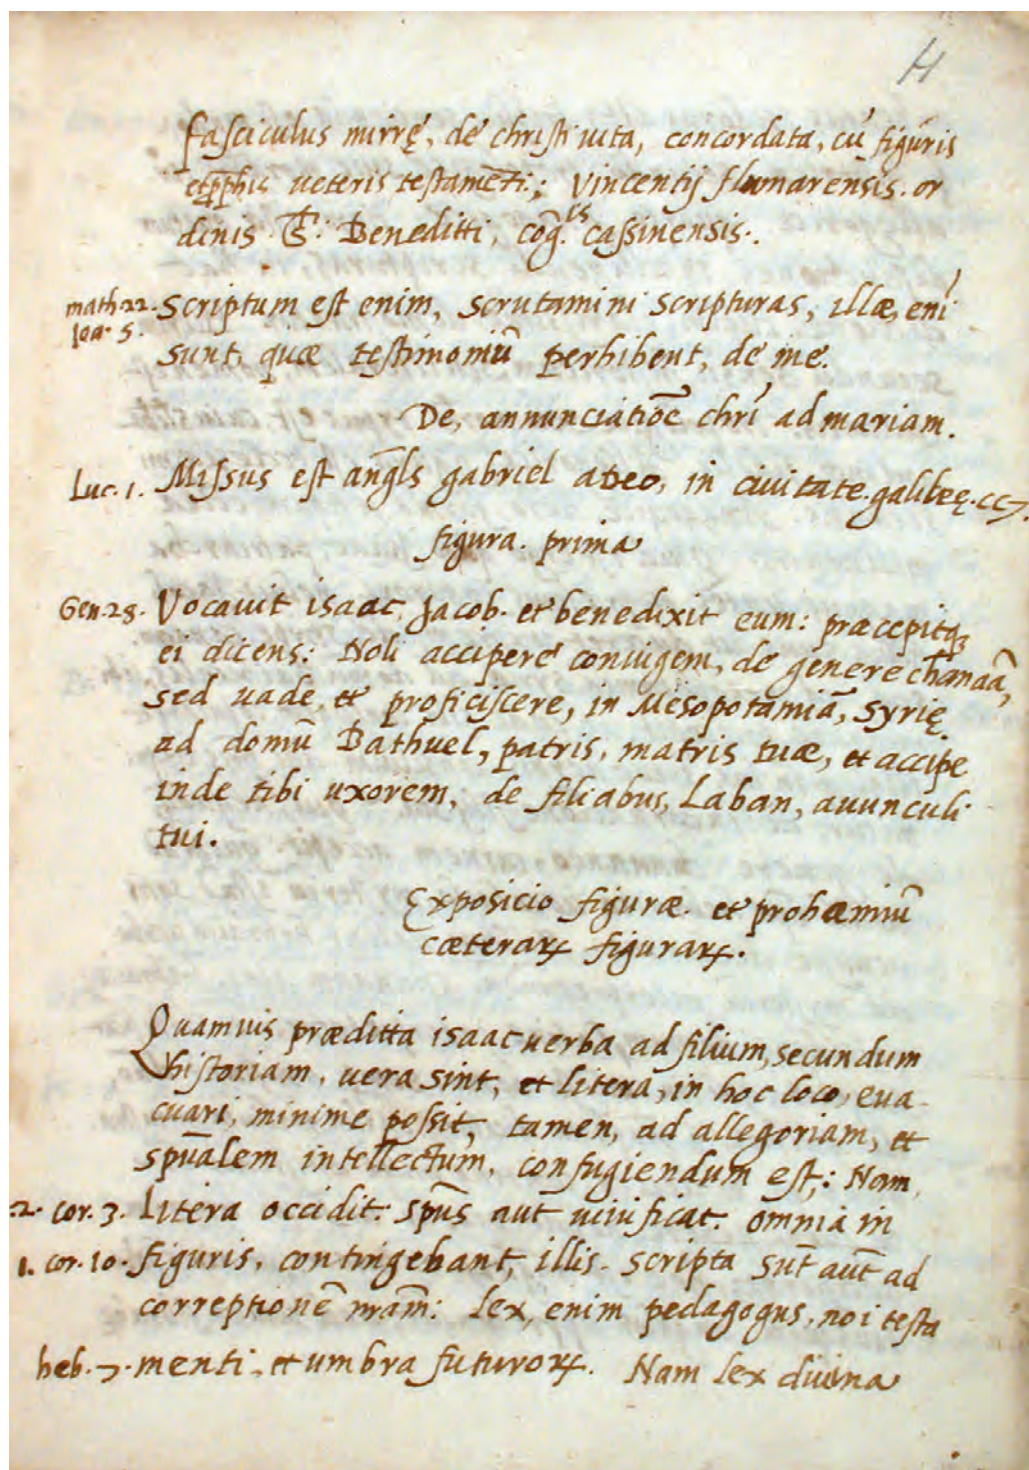 H
fasciculus mirrę, de christi uita, concordata, cũ figuris
et ꝓphis ueteris testamẽti; Vincentij flumarensis. or
dinis S^ti: Beneditti, cog̃^is. cassinensis.
math. 22. Scriptum est enim, scrutamini scripturas, illæ, enĩ
Ioa. 5. sunt, quæ testimoniũ perhibent, de me.
De, annunciatiõe chrĩ ad mariam.
Luc. 1. Missus est ang̃ls gabriel a deo, in ciuitate. galileę.
figura. prima
Gen. 28. Vocauit isaac, Jacob. et benedixit eum: præcepitqꝫ
ei dicens: Noli accipere coniugem, de genere chanaã,
sed uade, et proficiscere, in Mesopotamiã, Syrię
ad domũ Bathuel, patris, matris tuæ, et accipe
inde tibi uxorem, de filiabus, Laban, auunculi
tui.
Exposicio figuræ. et prohæmiũ
cæteraꝝ figuraꝝ.
Quamuis præditta isaac uerba ad filium, secundum
historiam, uera sint, et litera, in hoc loco, eua
cuari, minime possit, tamen, ad allegoriam, et
spũalem intellectum, confugiendum est; Nam,
2. cor. 3. Litera occidit: spũs aũt uiuificat. omnia in
1. cor. 10. figuris, contingebant, illis. scripta sũt aũt ad
correptionẽ nrãm: lex, enim pedagogus, noi testa
heb. 7. menti, et umbra futuroꝝ. Nam lex diuina